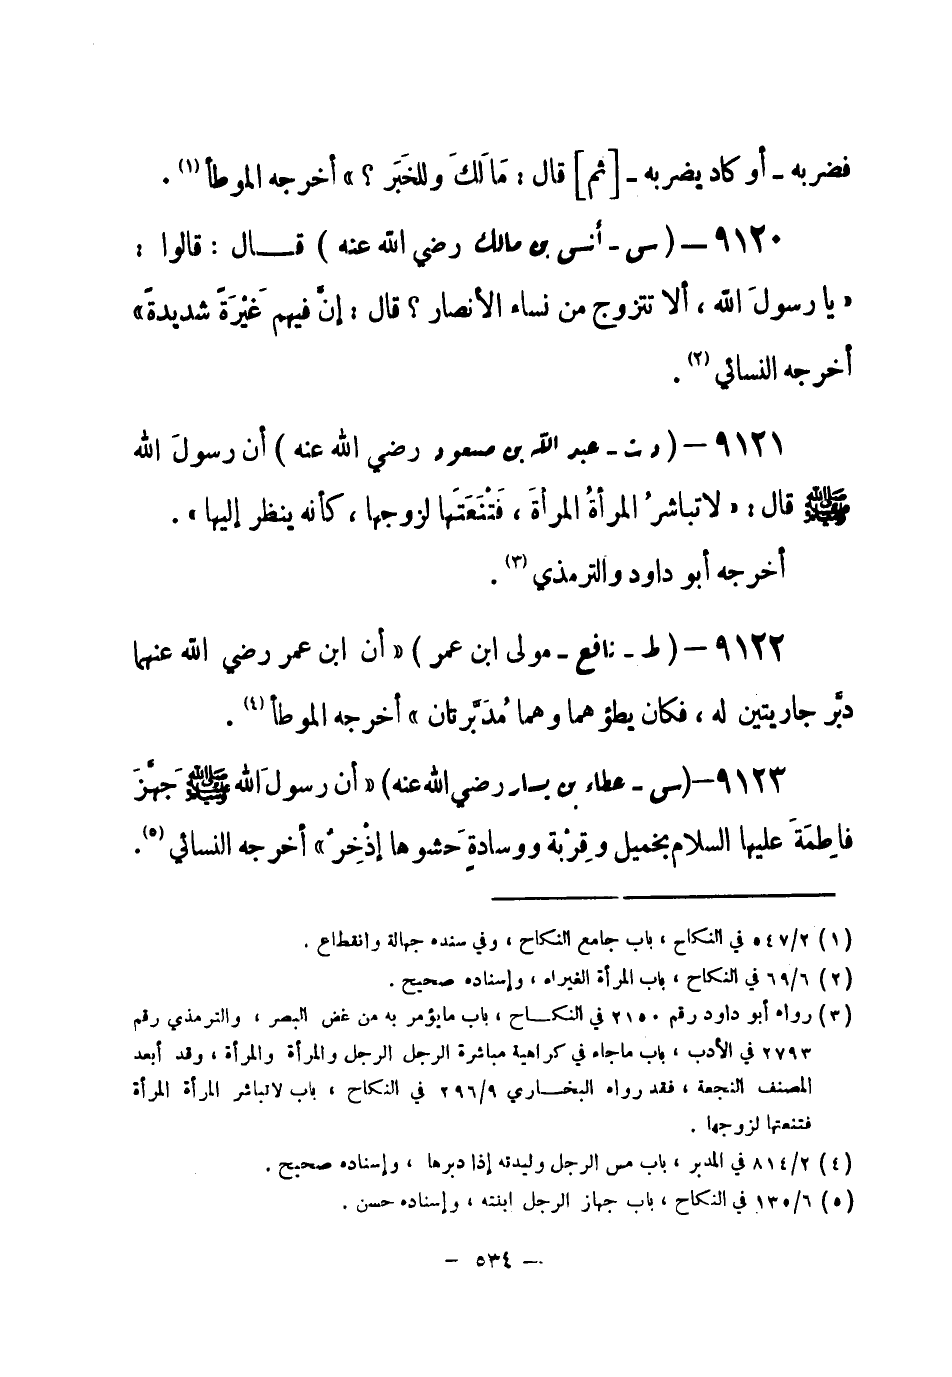 فضربه ـ أو كاد يضربه ـ [ثم] قال : مَا لَكَ وللخَبَر ؟ » أخرجه الموطأ (١) .
٩١٢٠ – ( س ـ أنس بن مالك رضي الله عنه ) قــال : قالوا :
« يا رسولَ الله ، ألا تتزوج من نساء الأنصار ؟ قال : إنَّ فيهم غَيْرَةً شديدةً »
أخرجه النسائي (٢) .
٩١٢١ – ( د ت ـ عبد الله بن مسعود رضي الله عنه ) أن رسولَ الله
ﷺ قال : « لا تباشرُ المرأةُ المرأةَ ، فَتَنْعَتَها لزوجها ، كأنه ينظر إليها » .
أخرجه أبو داود والترمذي (٣) .
٩١٢٢ – ( ط ـ نافع ـ مولى ابن عمر ) « أن ابن عمر رضي الله عنهما
دبَّر جاريتين له ، فكان يطؤهما وهما مُدَبَّرتان » أخرجه الموطأ (٤) .
٩١٢٣ – (س ـ عطاء بن يسار رضي الله عنه) « أن رسولَ الله ﷺ جَهَّزَ
فاطِمَةَ عليها السلام بخميل وقِرْبة ووسادةٍ حَشوها إذْخِرٌ » أخرجه النسائي (٥) .
(١) ٥٤٧/٢ في النكاح ، باب جامع النكاح ، وفي سنده جهالة وانقطاع .
(٢) ٦٩/٦ في النكاح ، باب المرأة الغيراء ، وإسناده صحيح .
(٣) رواه أبو داود رقم ٢١٥٠ في النكــاح ، باب مايؤمر به من غض البصر ، والترمذي رقم
٢٧٩٣ في الأدب ، باب ماجاء في كراهية مباشرة الرجل الرجل والمرأة والمرأة ، وقد أبعد
المصنف النجعة ، فقد رواه البخــاري ٢٩٦/٩ في النكاح ، باب لاتباشر المرأة المرأة
فتنعتها لزوجها .
(٤) ٨١٤/٢ في المدبر ، باب مس الرجل وليدته إذا دبرها ، وإسناده صحيح .
(٥) ١٣٥/٦ في النكاح ، باب جهاز الرجل ابنته ، وإسناده حسن .
– ٥٣٤ –